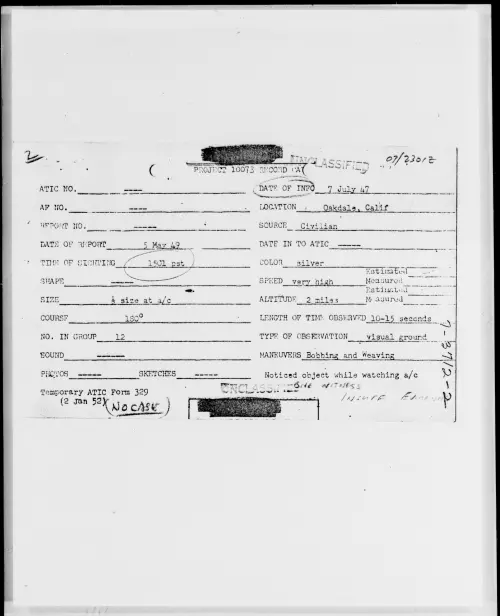 2
UNCLASSIFIED
07/2301Z
PROJECT 10073 RECORD CA
ATIC NO. ----
DATE OF INFO 7 July 47
AF NO. ----
LOCATION Oakdale, Calif
REPORT NO. -----
SOURCE Civilian
DATE OF REPORT 5 May 49
DATE IN TO ATIC -----
TIME OF SIGHTING 1501 pst
COLOR silver
SHAPE ----
SPEED very high
Estimated
Measured
SIZE size at a/c
ALTITUDE 2 miles
Estimated
Measured
COURSE 180°
LENGTH OF TIME OBSERVED 10-15 seconds
NO. IN GROUP 12
TYPE OF OBSERVATION visual ground
SOUND ------
MANEUVERS Bobbing and Weaving
PHOTOS ----- SKETCHES -----
Noticed object while watching a/c
Temporary ATIC Form 329
(2 Jan 52)
UNCLASSIFIED
ONE WITNESS
(NO CASE)
7-3712-2